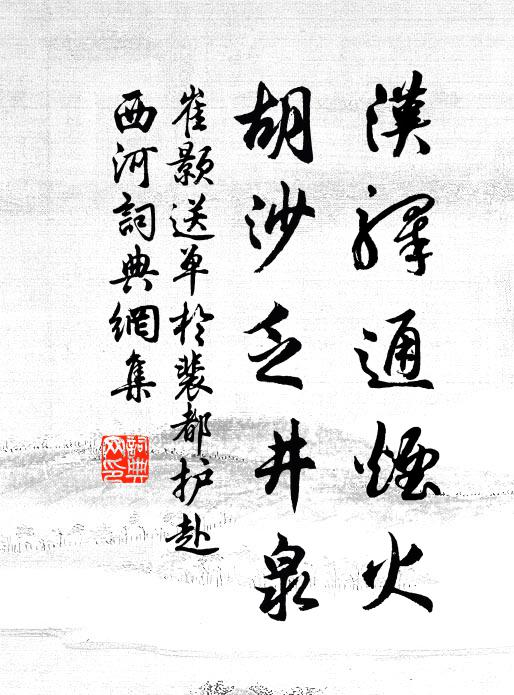 漢驛通煙火
胡沙乏井泉
崔颢送单於裴都护赴
西河詞典網集
詞典网印